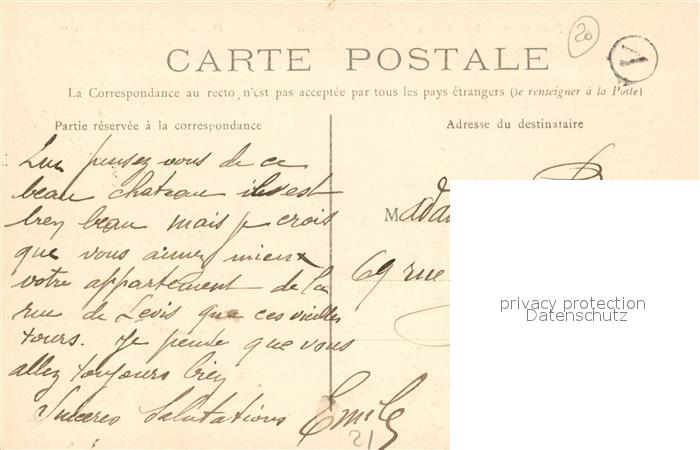 20
V
CARTE POSTALE
La Correspondance au recto, n'est pas acceptée par tous les pays étrangers (se renseigner à la Poste)
Partie réservée à la correspondance
Adresse du destinataire
Que pensez vous de ce
beau chateau il est
bien beau mais je crois
que vous aimez mieux
votre appartement de la
rue de Levis que ces vieilles
tours. Je pense que vous
allez toujours bien
Sinceres Salutations
Emile
21
Mada
69 rue
privacy protection
Datenschutz